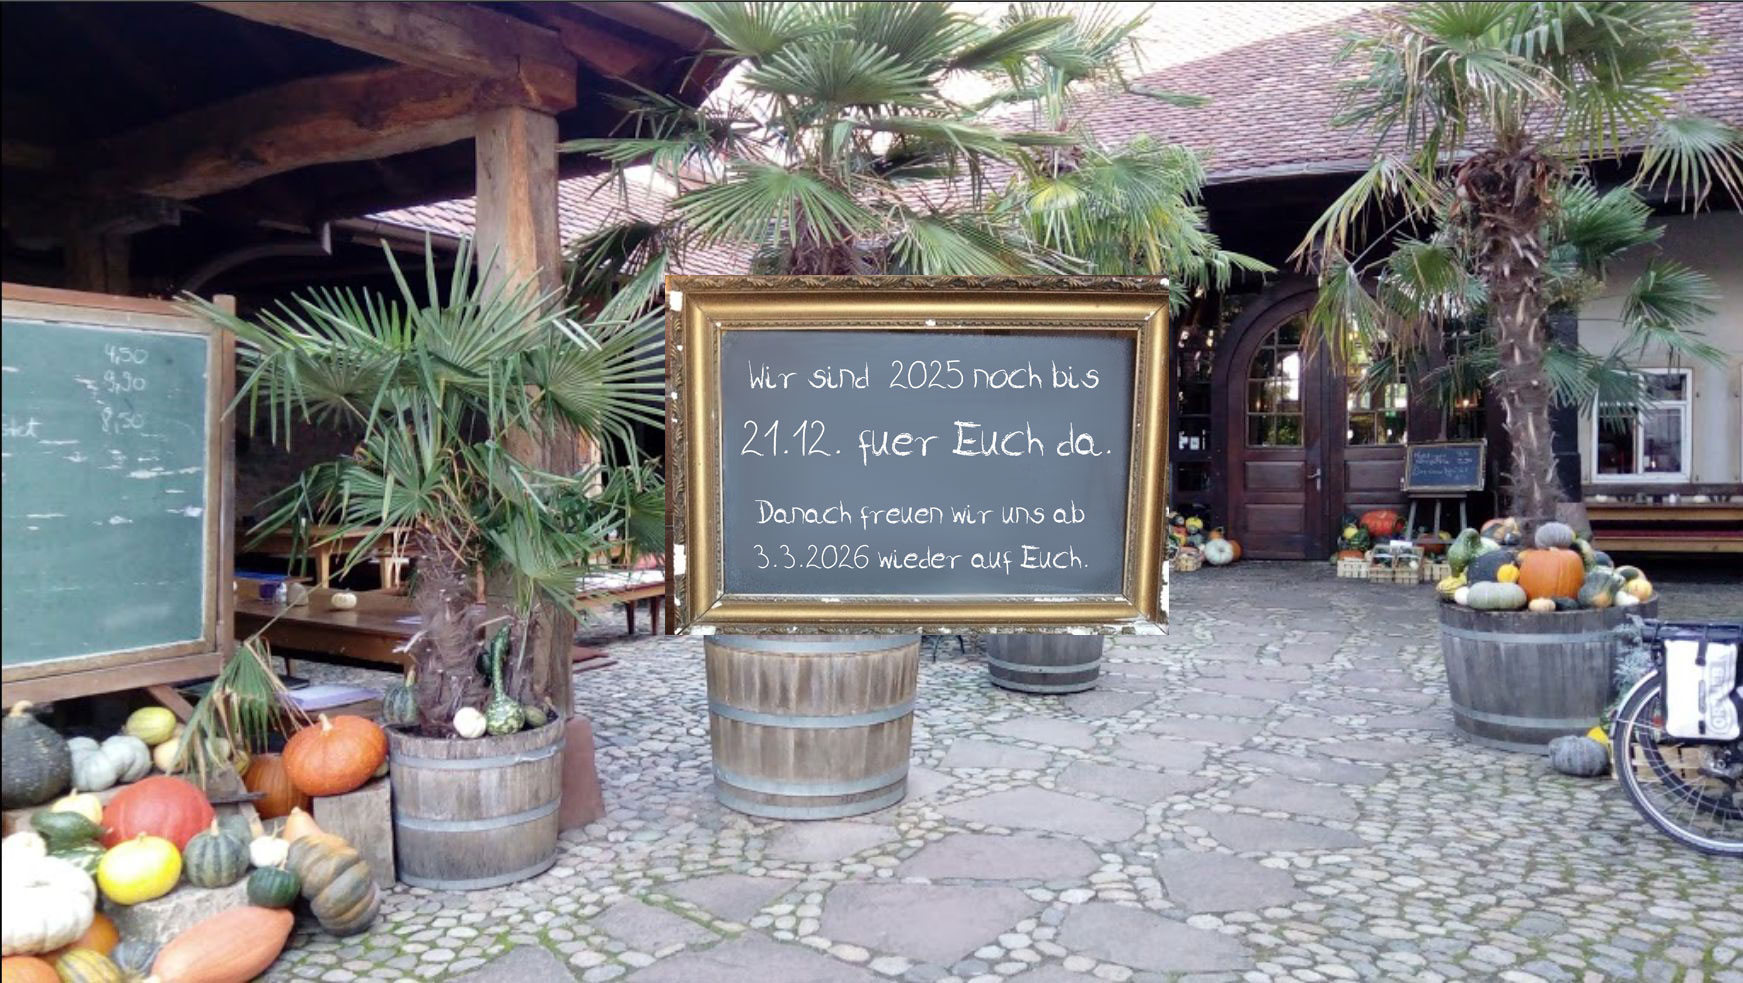 4,50
9,90
8,50
Wir sind 2025 noch bis
21.12. fuer Euch da.
Danach freuen wir uns ab
3.3.2026 wieder auf Euch.